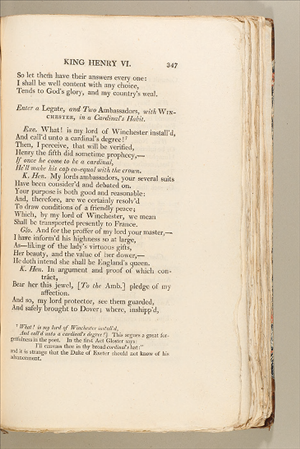 KING HENRY VI. 347
So let them have their answers every one:
I shall be well content with any choice,
Tends to God's glory, and my country's weal.
Enter a Legate, and Two Ambassadors, with WIN-
CHESTER, in a Cardinal's Habit.
Exe. What! is my lord of Winchester install'd,
And call'd unto a cardinal's degree!⁷
Then, I perceive, that will be verified,
Henry the fifth did sometime prophecy,—
If once he come to be a cardinal,
He'll make his cap co-equal with the crown.
K. Hen. My lords ambassadors, your several suits
Have been consider'd and debated on.
Your purpose is both good and reasonable:
And, therefore, are we certainly resolv'd
To draw conditions of a friendly peace;
Which, by my lord of Winchester, we mean
Shall be transported presently to France.
Glo. And for the proffer of my lord your master,—
I have inform'd his highness so at large,
As—liking of the lady's virtuous gifts,
Her beauty, and the value of her dower,—
He doth intend she shall be England's queen.
K. Hen. In argument and proof of which con-
tráct,
Bear her this jewel, [To the Amb.] pledge of my
affection.
And so, my lord protector, see them guarded,
And safely brought to Dover; where, inshipp'd,
⁷ What! is my lord of Winchester install'd,
And call'd unto a cardinal's degree!] This argues a great for-
getfulness in the poet. In the first Act Gloster says:
I'll canvass thee in thy broad cardinal's hat:"
and it is strange that the Duke of Exeter should not know of his
advancement.